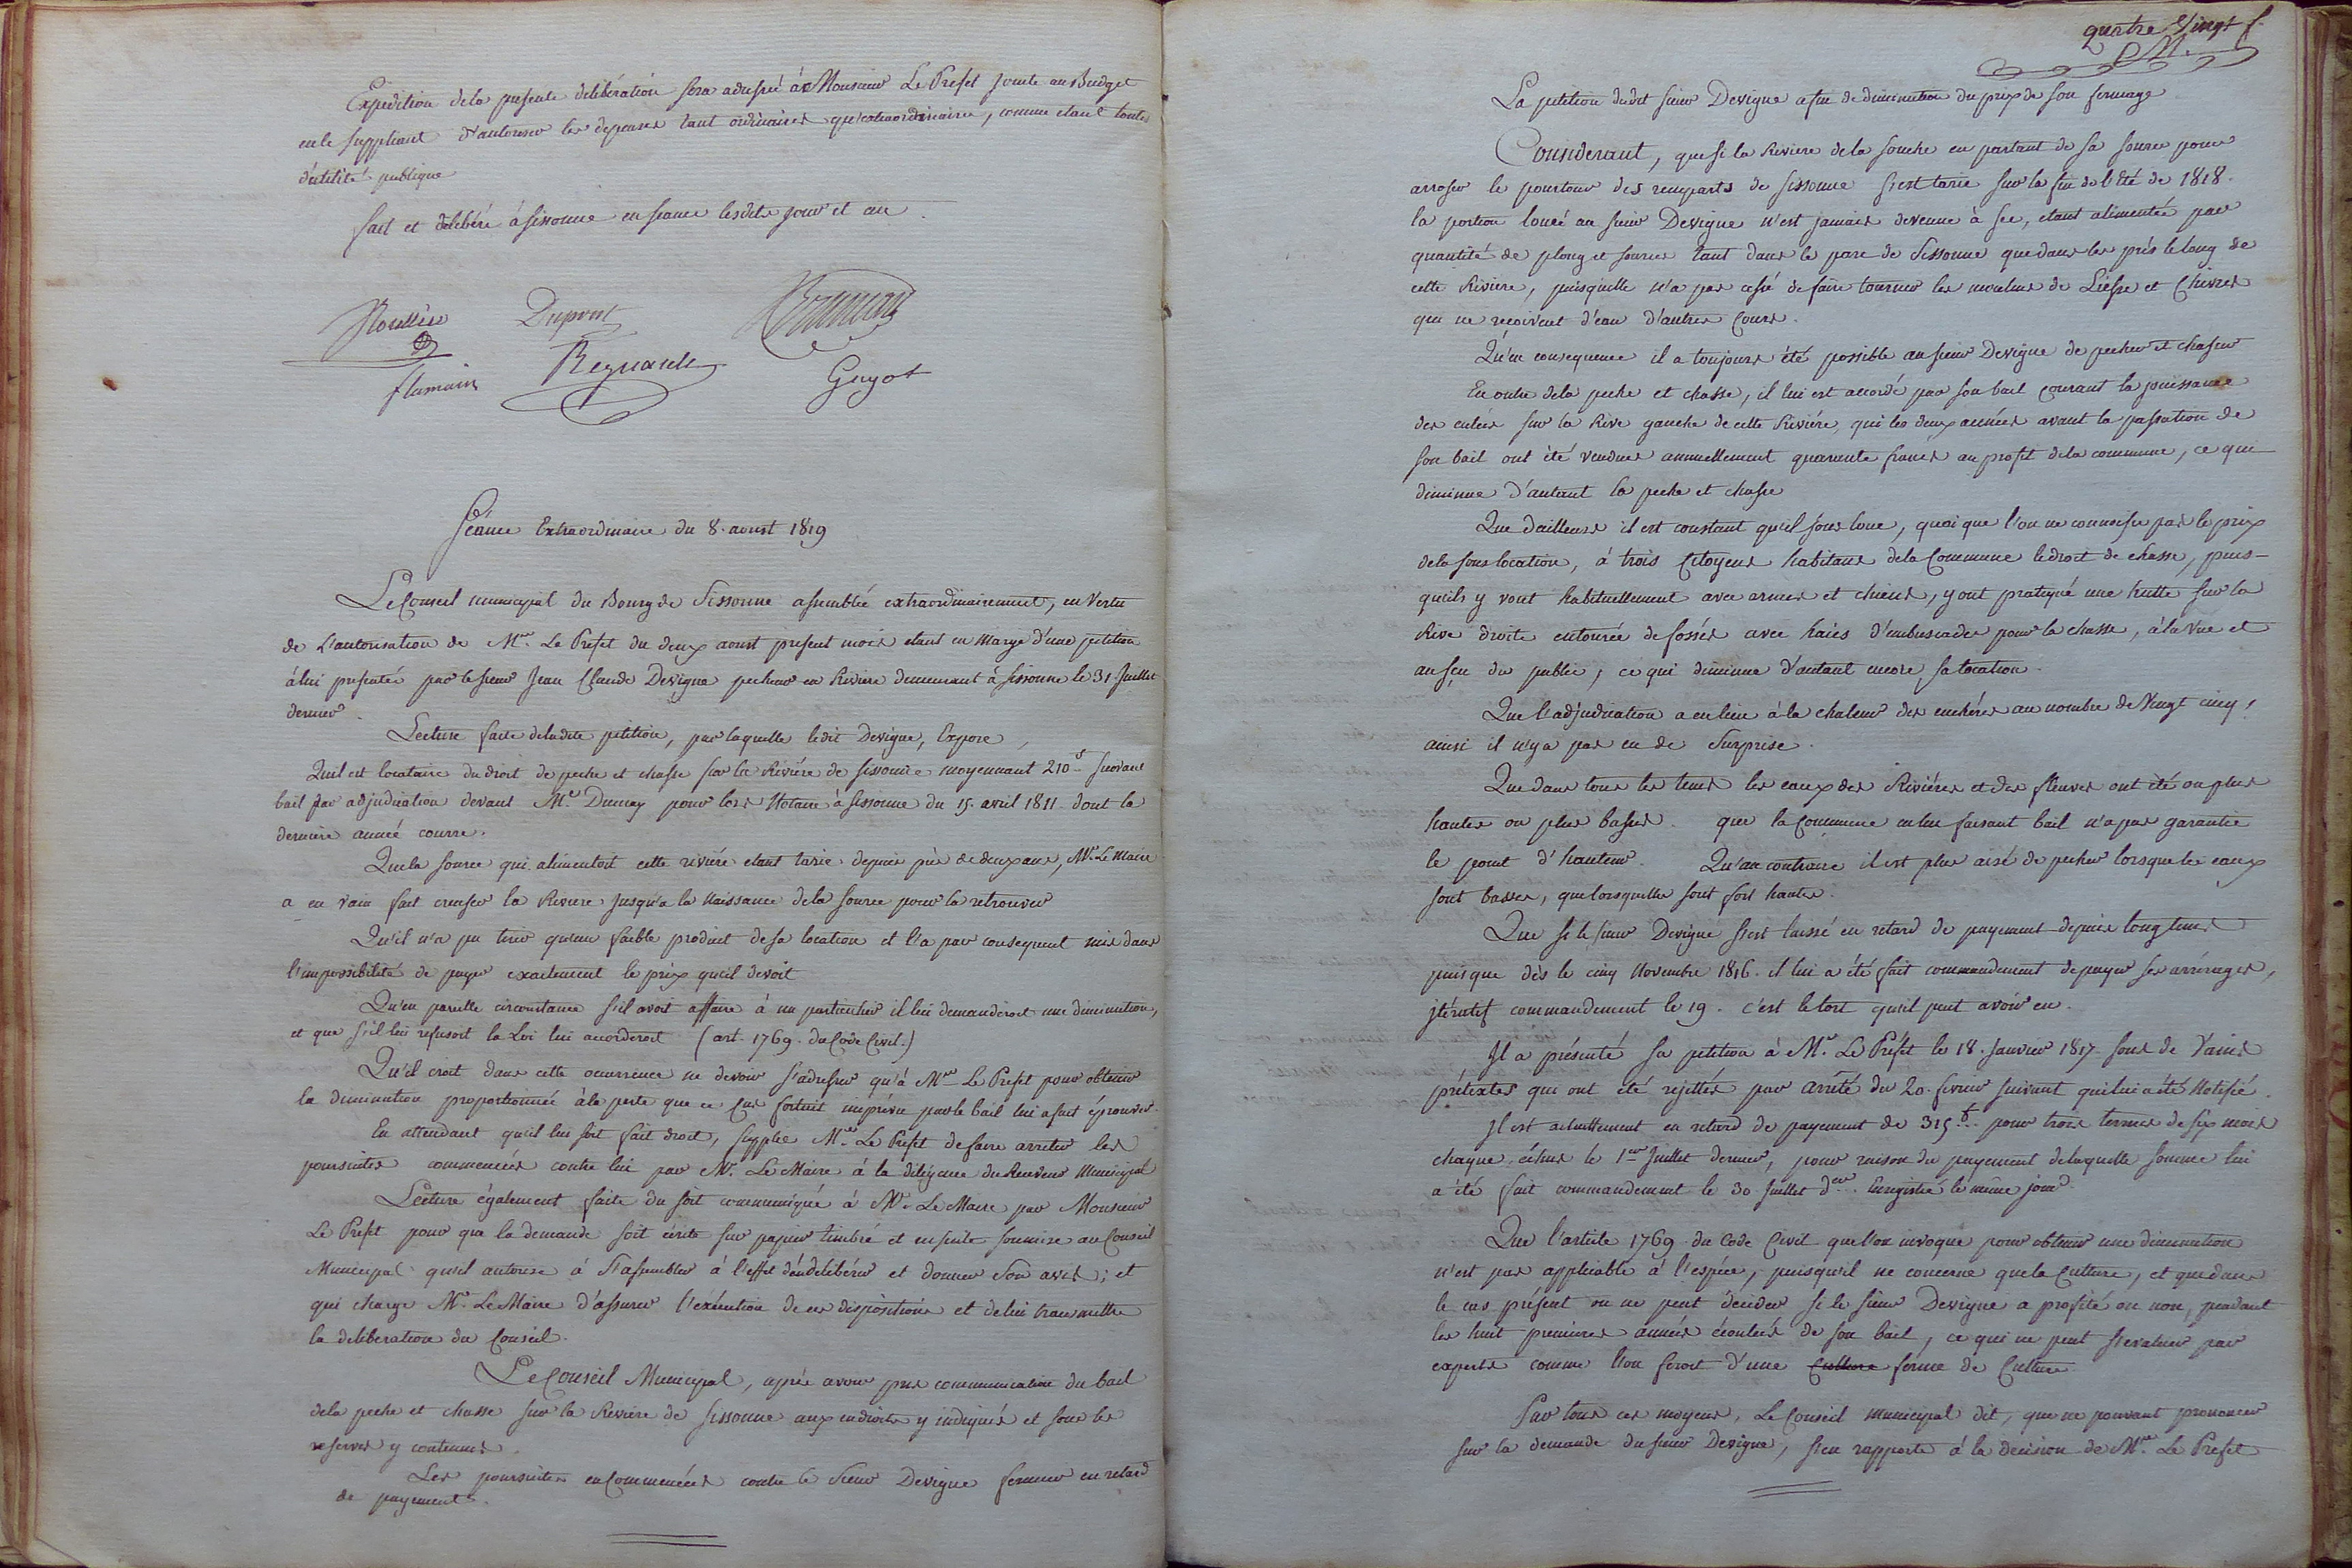 Expedition dela presente deliberation sera adressée à Monsieur Le Prefet jointe au Budget
en le suppliant d'autoriser les depenses tant ordinaires qu'extraordinaires, comme etant toutes
d'utilité publique
fait et deliberé à Sissonne en seance lesdits jour et an.
Dupont
flamain Regnard Guyot
Séance Extraordinaire du 8. aoust 1819
Le Conseil municipal du Bourg de Sissonne assemblée extraordinairement, en vertu
de l'autorisation de Mr. Le Prefet du deux aoust present mois etant en marge d'une petition
à lui presentée par le sieur Jean Claude Devigne pecheur en Riviere demeurant à Sissonne le 31. Juillet
dernier.
Lecture faite deladite petition, par laquelle ledit Devigne, Expose,
Quil est locataire du droit de peche et chasse sur la Riviére de Sissonne moyennant 210 f suivant
bail par adjudication devant Me. Dumay pour lors Notaire à Sissonne du 15. avril 1811 dont la
derniere année courre.
Quela source qui alimentoit cette riviére etant tarie depuis près de deux ans, Mr. Le Maire
a en vain fait creuser la Riviere jusqu'a la Naissance dela source pour la retrouver
Qu'il n'a pu tirer qu'un faible produit de sa location et l'a par consequent mis dans
l'impossibilité de payer exactement le prix quil devoit
Qu'en pareille circonstance s'il avoit affaire à un particulier il lui demanderoit une diminution,
et que s'il lui refusoit la Loi lui accorderoit (art. 1769. du Code Civil.)
Qu'il croit dans cette ocurrence ne devoir s'adresser qu'à Mr. Le Prefet pour obtenir
la diminution proportionnée à la perte que ce Cas fortuit imprévu par le bail lui a fait éprouver.
En attendant qu'il lui soit fait droit, supplie Mr. Le Prefet de faire arreter les
poursuites commencées contre lui par Mr. Le Maire à la diligence du Receveur Municipal
Lecture également faite du soit communiqué à Mr. Le Maire par Monsieur
Le Prefet pour que la demande soit écrite sur papier timbré et ensuite soumise au Conseil
Municipal qu'il autorise à s'assembler à l'effet d'en delibérer et donner son avis; et
qui charge Mr. Le Maire d'assurer l'exécution de ces dispositions et de lui transmettre
la deliberation du Conseil.
Le Conseil Municipal, aprés avoir pris communication du bail
dela peche et chasse sur la Riviere de Sissonne aux endroits y indiqués et sous les
reserves y contenues.
Les poursuites encommencées contre le Sieur Devigne fermier en retard
de payement.
quatre Vingt f.
La petition dudit sieur Devigne afin de diminution du prix de son fermage
Considerant, que si la Riviere dela souche en partant de sa source pour
arroser le pourtour des remparts de Sissonne s'est tarie sur la fin de l'Eté de 1818.
la portion louée au sieur Devigne n'est jamais devenue à sec, etant alimentée par
quantité de plong et sources tant dans le parc de Sissonne que dans les prés le long de
cette Riviere, puisquelle n'a pas cessé de faire tourner les moulins de Liesse et Chivres
qui ne reçoivent d'eau d'autres Cours.
Qu'en consequence il a toujours été possible au sieur Devigne de pecher et chasser
En outre dela peche et chasse, il lui est accordé par son bail courant la jouissance
des entées sur la Rive gauche de cette Riviére, qui les deux années avant la passation de
son bail ont été vendues annuellement quarante francs au profit dela commune, ce qui
diminue d'autant la peche et chasse
Que d'ailleurs il est constant qu'il sous loue, quoi que l'on ne connoisse pas le prix
dela souslocation, à trois Citoyens habitans dela Commune le droit de chasse, puis-
quils y vont habituellement avec armes et chiens, y ont pratiqué une hutte sur la
Rive droite entourée de fossés avec haies d'embuscades pour la chasse, à la vue et
au sçu du public, ce qui diminue d'autant encore sa location.
Que l'adjudication a eu lieu à la chaleur des enchéres au nombre de Vingt cinq,
ainsi il n'y a pas eu de Surprise.
Que dans tous les tems les eaux des Riviéres et des fleuves ont été ou plus
hautes ou plus basses. que la Commune en lui faisant bail n'a pas garantie
le point d'hauteur. Qu'au contraire il est plus aisé de pecher lorsque les eaux
sont basses, que lorsquelles sont fort hautes.
Que si le sieur Devigne s'est laissé en retard de payement depuis longtems
puisque dès le cinq Novembre 1816. il lui a été fait commandement de payer ses arrérages,
itératif commandement le 19. c'est le tort qu'il peut avoir eu.
Il a présenté sa petition à Mr. Le Préfet le 18. Janvier 1817 sous de Vains
prétextes qui ont été rejettés par arrêté du 20. fevrier suivant qui lui a été Notifié.
Il est actuellement en retard de payement de 315 f. pour trois termes de six mois
chaque, échus le 1er Juillet dernier, pour raison du payement de laquelle somme lui
a été fait commandement le 30 Juillet der. Enregistré le même jour.
Que l'article 1769 du Code Civil que l'on invoque pour obtenir une diminution
n'est pas applicable à l'espece, puisqu'il ne concerne que la Culture, et que dans
le cas présent on ne peut décider si le sieur Devigne a profité ou non, pendant
les huit premieres années écoulées de son bail, ce qui ne peut s'evaluer par
experts comme l'on feroit d'une Culture ferme de Culture
Par tous ces moyens, Le Conseil municipal dit, que ne pouvant prononcer
sur la demande du sieur Devigne, s'en rapporte à la decision de Mr. Le Prefet